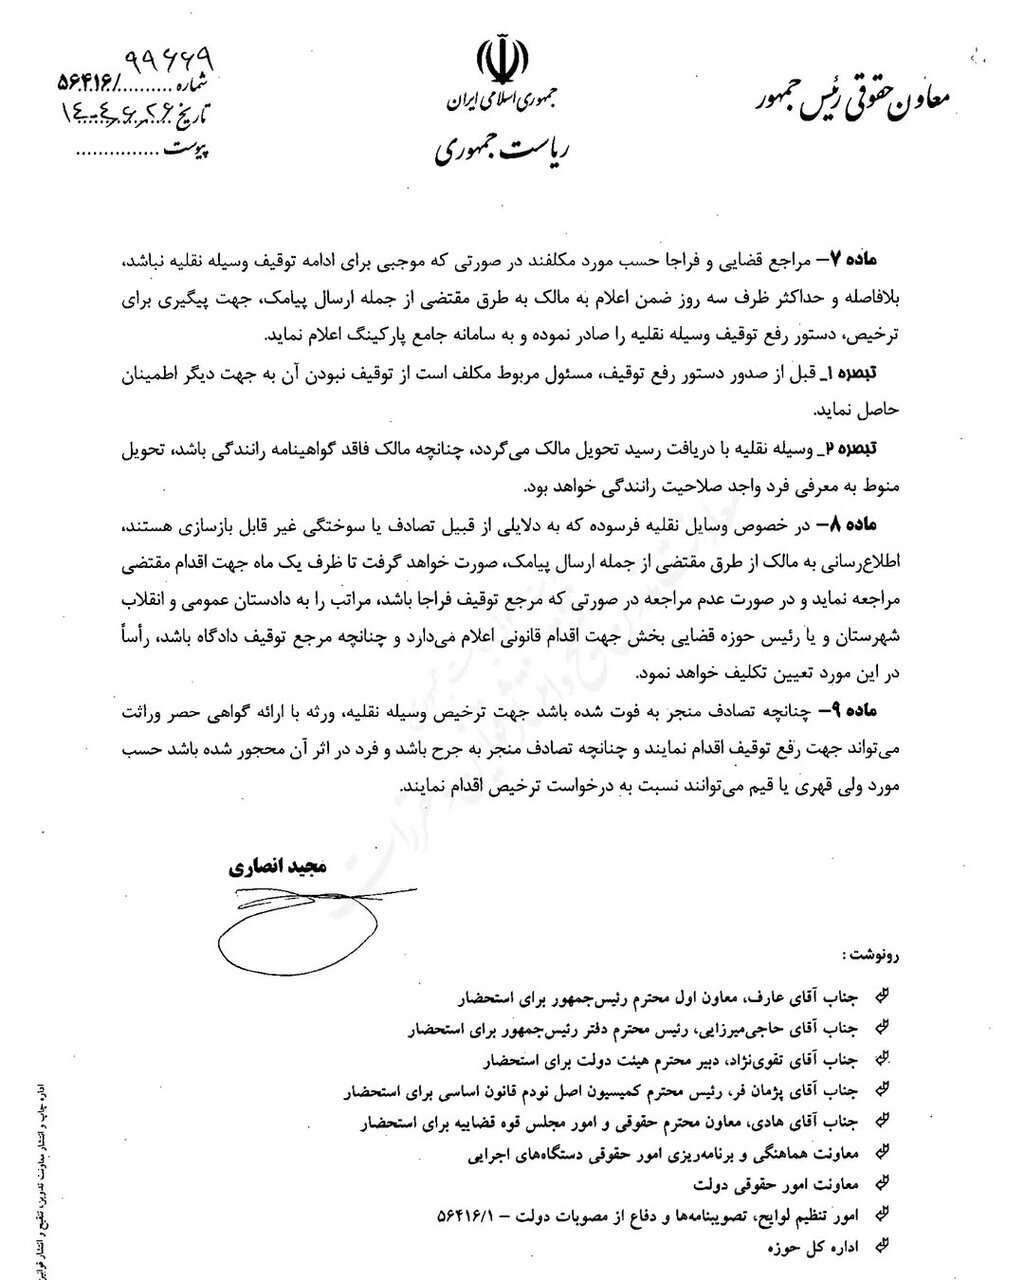 معاون حقوقی رئیس جمهور
جمهوری اسلامی ایران
ریاست جمهوری
شماره ........../۵۶۴۱۶
۹۹۶۶۹
تاریخ ۱۴۰۴,۶,۲۶
پیوست ...............
ماده ۷– مراجع قضایی و فراجا حسب مورد مکلفند در صورتی که موجبی برای ادامه توقیف وسیله نقلیه نباشد،
بلافاصله و حداکثر ظرف سه روز ضمن اعلام به مالک به طرق مقتضی از جمله ارسال پیامک، جهت پیگیری برای
ترخیص، دستور رفع توقیف وسیله نقلیه را صادر نموده و به سامانه جامع پارکینگ اعلام نماید.
تبصره ۱_ قبل از صدور دستور رفع توقیف، مسئول مربوط مکلف است از توقیف نبودن آن به جهت دیگر اطمینان
حاصل نماید.
تبصره ۲_ وسیله نقلیه با دریافت رسید تحویل مالک می‌گردد، چنانچه مالک فاقد گواهینامه رانندگی باشد، تحویل
منوط به معرفی فرد واجد صلاحیت رانندگی خواهد بود.
ماده ۸– در خصوص وسایل نقلیه فرسوده که به دلایلی از قبیل تصادف یا سوختگی غیر قابل بازسازی هستند،
اطلاع‌رسانی به مالک از طرق مقتضی از جمله ارسال پیامک، صورت خواهد گرفت تا ظرف یک ماه جهت اقدام مقتضی
مراجعه نماید و در صورت عدم مراجعه در صورتی که مرجع توقیف فراجا باشد، مراتب را به دادستان عمومی و انقلاب
شهرستان و یا رئیس حوزه قضایی بخش جهت اقدام قانونی اعلام می‌دارد و چنانچه مرجع توقیف دادگاه باشد، رأساً
در این مورد تعیین تکلیف خواهد نمود.
ماده ۹– چنانچه تصادف منجر به فوت شده باشد جهت ترخیص وسیله نقلیه، ورثه با ارائه گواهی حصر وراثت
می‌تواند جهت رفع توقیف اقدام نمایند و چنانچه تصادف منجر به جرح باشد و فرد در اثر آن محجور شده باشد حسب
مورد ولی قهری یا قیم می‌توانند نسبت به درخواست ترخیص اقدام نمایند.
مجید انصاری
رونوشت :
جناب آقای عارف، معاون اول محترم رئیس‌جمهور برای استحضار
جناب آقای حاجی‌میرزایی، رئیس محترم دفتر رئیس‌جمهور برای استحضار
جناب آقای تقوی‌نژاد، دبیر محترم هیئت دولت برای استحضار
جناب آقای پژمان فر، رئیس محترم کمیسیون اصل نودم قانون اساسی برای استحضار
جناب آقای هادی، معاون محترم حقوقی و امور مجلس قوه قضاییه برای استحضار
معاونت هماهنگی و برنامه‌ریزی امور حقوقی دستگاه‌های اجرایی
معاونت امور حقوقی دولت
امور تنظیم لوایح، تصویبنامه‌ها و دفاع از مصوبات دولت – ۵۶۴۱۶/۱
اداره کل حوزه
اداره چاپ و انتشار معاونت تدوین، تنقیح و انتشار قوانین